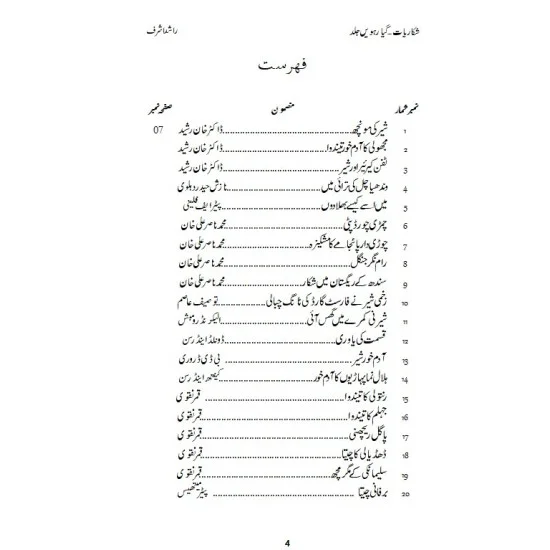 شکاریات۔ گیارہویں جلد راشد اشرف
فہرست
نمبر شمار مضمون صفحہ نمبر
1 شیر کی مونچھ ڈاکٹر خان رشید 07
2 مچھولی کا آدم خور تیندوا ڈاکٹر خان رشید
3 ٹفن کیرئیر اور شیر ڈاکٹر خان رشید
4 وندھیاچل کی ترائی میں نازش حیدر دہلوی
5 میں اسے کیسے بھلا دوں پیٹر ایف فلیمی
6 چمڑی چور ڈپٹی محمد ناصر علی خان
7 چوڑی دار پائجامے کا مشکیزہ محمد ناصر علی خان
8 رام نگر جنگل محمد ناصر علی خان
9 سندھ کے ریگستان میں شکار محمد ناصر علی خان
10 زخمی شیر نے فارسٹ گارڈ کی ٹانگ چبالی توصیف عاصم
11 شیرنی کمرے میں گھس آئی الیگزنڈر
12 قسمت کی یاوری ڈونلڈ اینڈرسن
13 آدم خور شیر بی ڈی ڈروری
14 ہلال نما پہاڑیوں کا آدم خور کینتھ اینڈرسن
15 رنتولی کا تیندوا قمر نقوی
16 جہلم کا تیندوا قمر نقوی
17 پاگل ریچھنی قمر نقوی
18 ڈھڈیالی کا چیتا قمر نقوی
19 سلیمانکی کے مگرمچھ قمر نقوی
20 برفانی چیتا پیٹر میتھیس
4